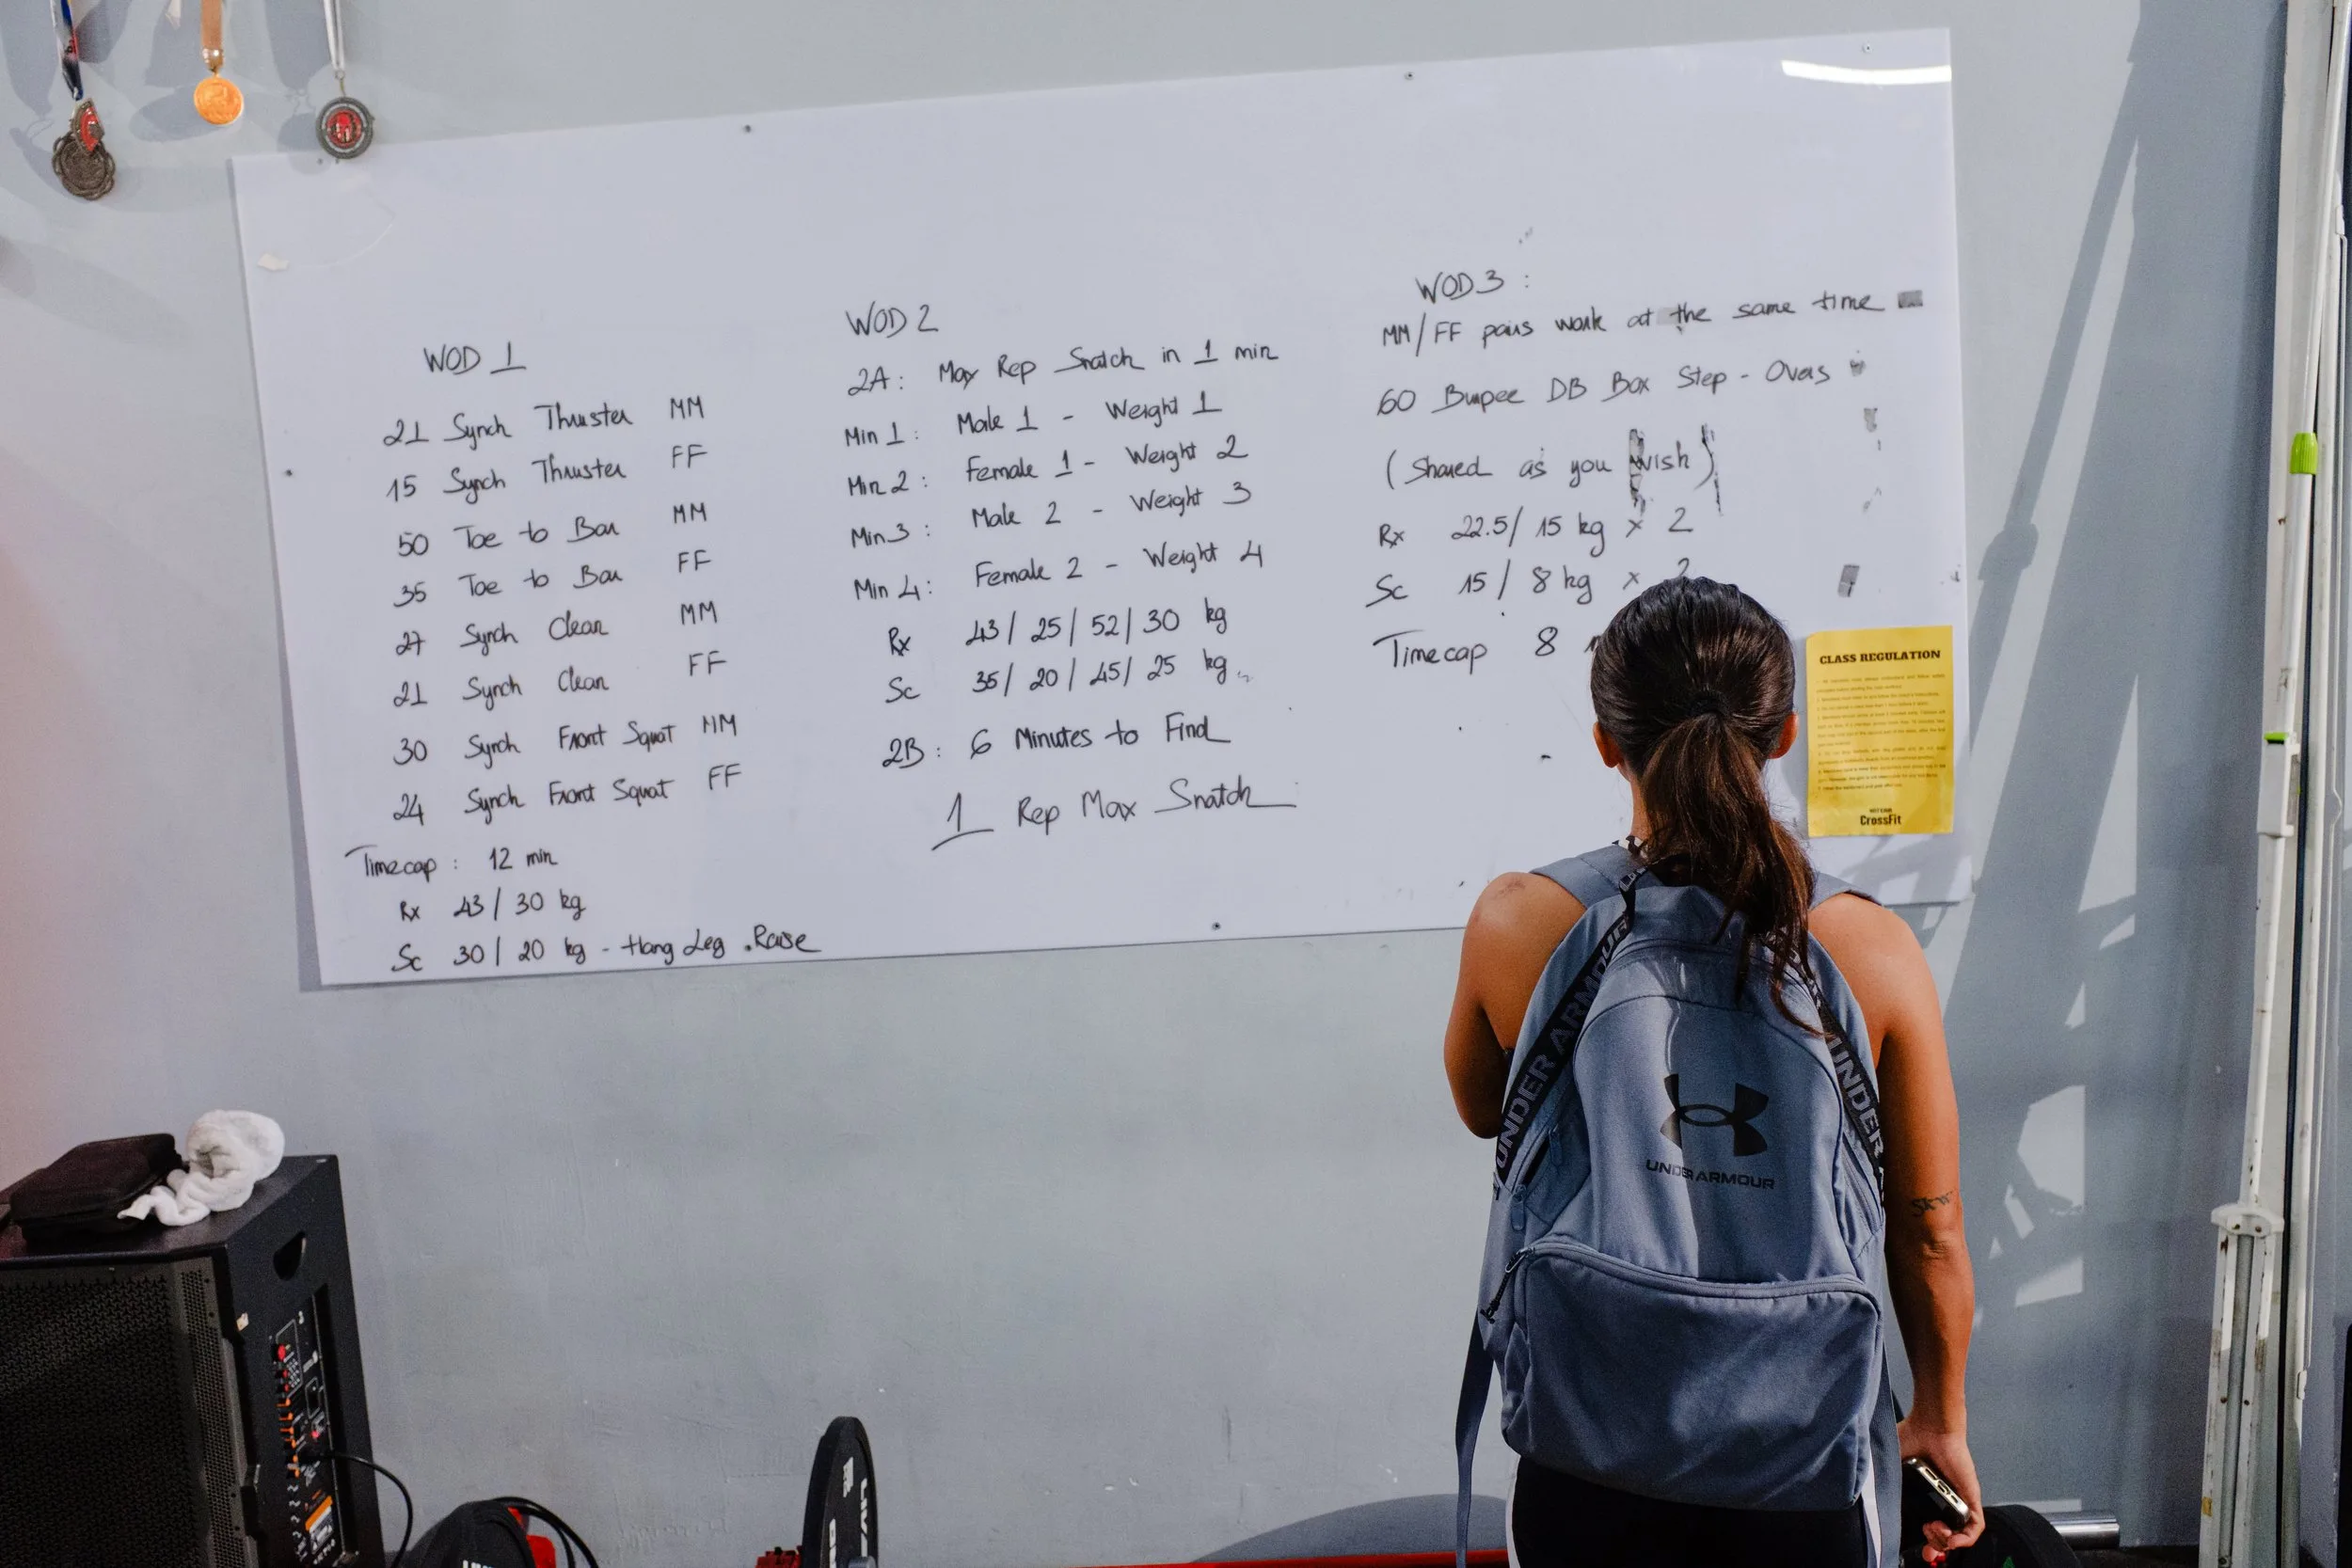 WOD 1
21 Synch Thruster MM
15 Synch Thruster FF
50 Toe to Bar MM
35 Toe to Bar FF
27 Synch Clean MM
21 Synch Clean FF
30 Synch Front Squat MM
24 Synch Front Squat FF
Timecap : 12 min
Rx 43 / 30 kg
Sc 30 / 20 kg - Hang Leg Raise
WOD 2
2A : Max Rep Snatch in 1 min
Min 1 : Male 1 - Weight 1
Min 2 : Female 1 - Weight 2
Min 3 : Male 2 - Weight 3
Min 4 : Female 2 - Weight 4
Rx 43 / 25 / 52 / 30 kg
Sc 35 / 20 / 45 / 25 kg
2B : 6 Minutes to Find
1 Rep Max Snatch
WOD 3 :
MM / FF pairs work at the same time
60 Burpee DB Box Step - Overs
(Shared as you wish)
Rx 22.5 / 15 kg x 2
Sc 15 / 8 kg x 2
Timecap 8
CLASS REGULATION
CrossFit
UNDER ARMOUR
UNDER
UNDER ARMOUR